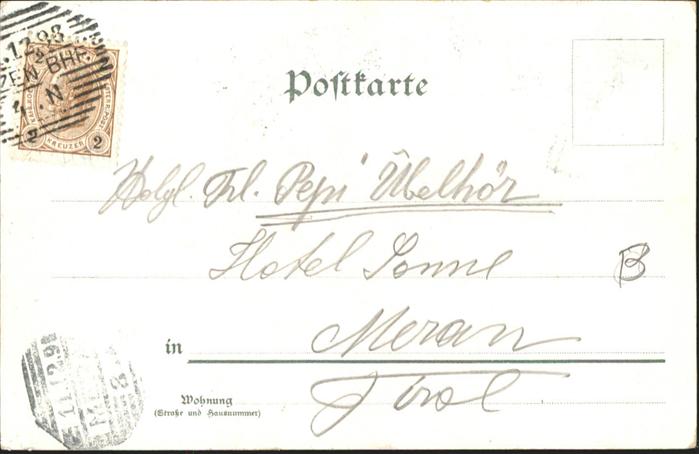 .12.98
BHF.
N
KREUZER
2
2
2
Postkarte
Frl. Pepi Übelhör
Hotel Sonne
in Meran
Tirol
Wohnung
(Straße und Hausnummer)
B